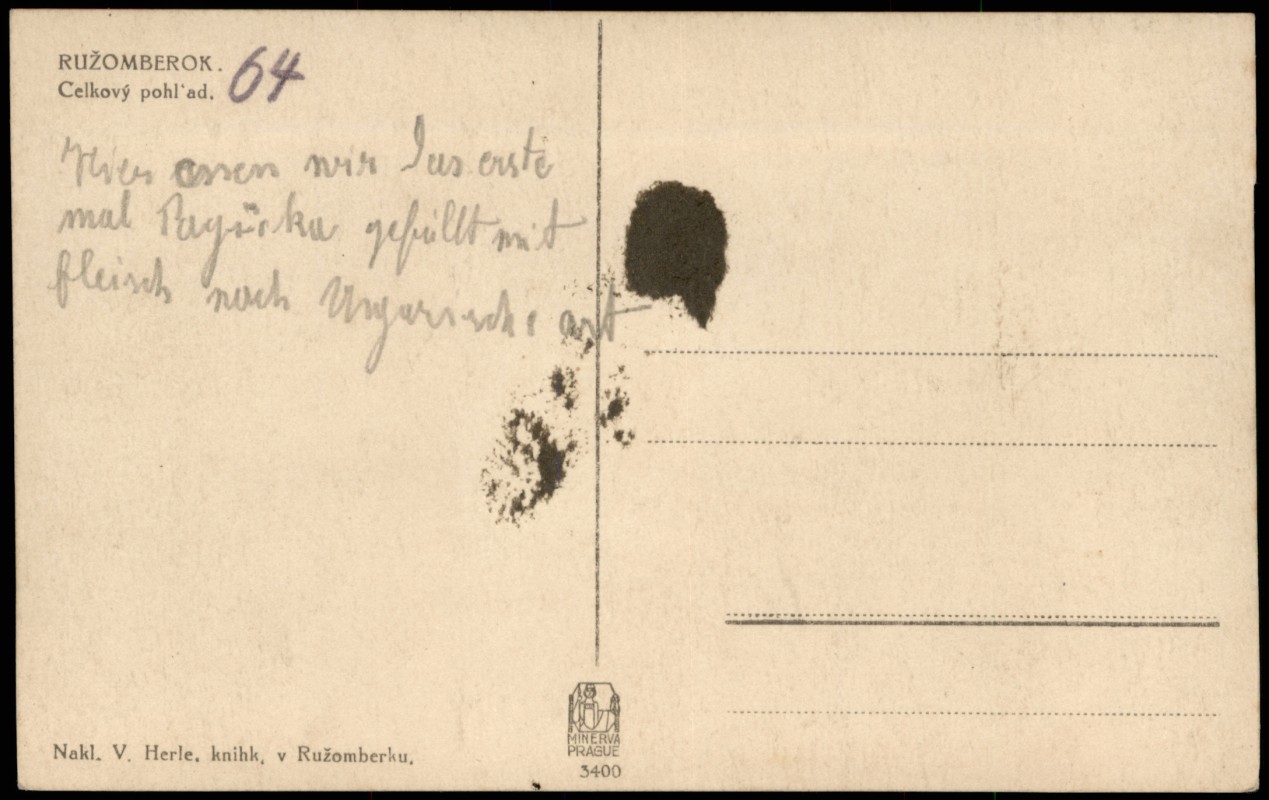 RUŽOMBEROK. 64
Celkový pohl'ad.
Hier essen wir das erste
mal gefüllt mit
fleisch noch Ungarische art
Nakl. V. Herle, knihk, v Ružomberku.
MINERVA
PRAGUE
3400